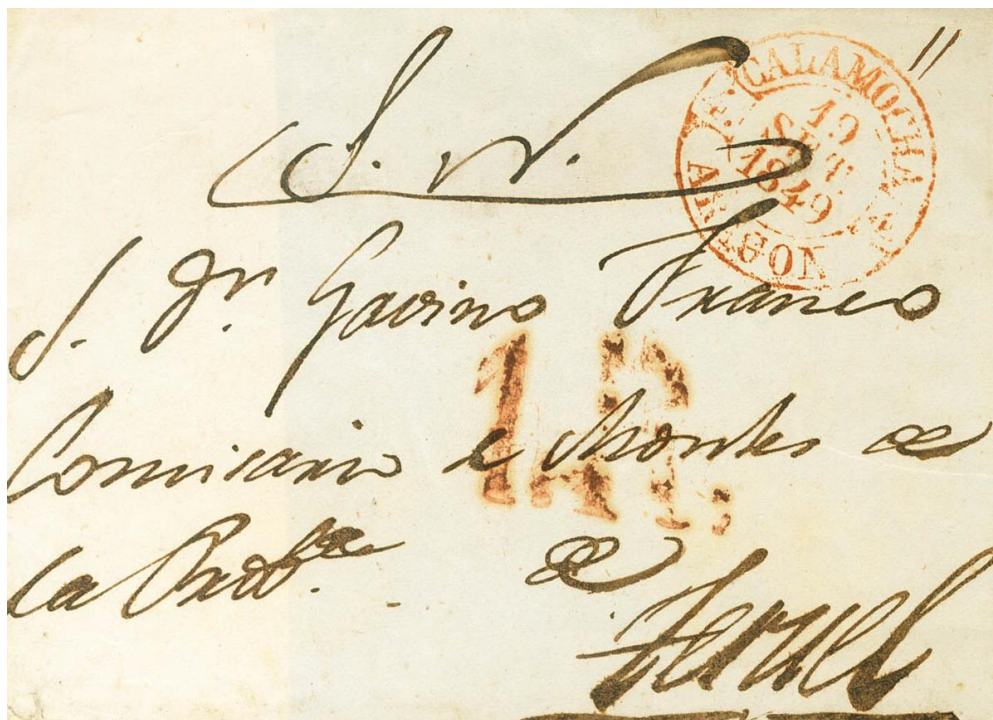 S. N.
CALAMOCHA
19
SET
1849
ARAGON
S. Dn. Gavino Franco
1R.
Comisario de Montes de
la Provª. de
Teruel